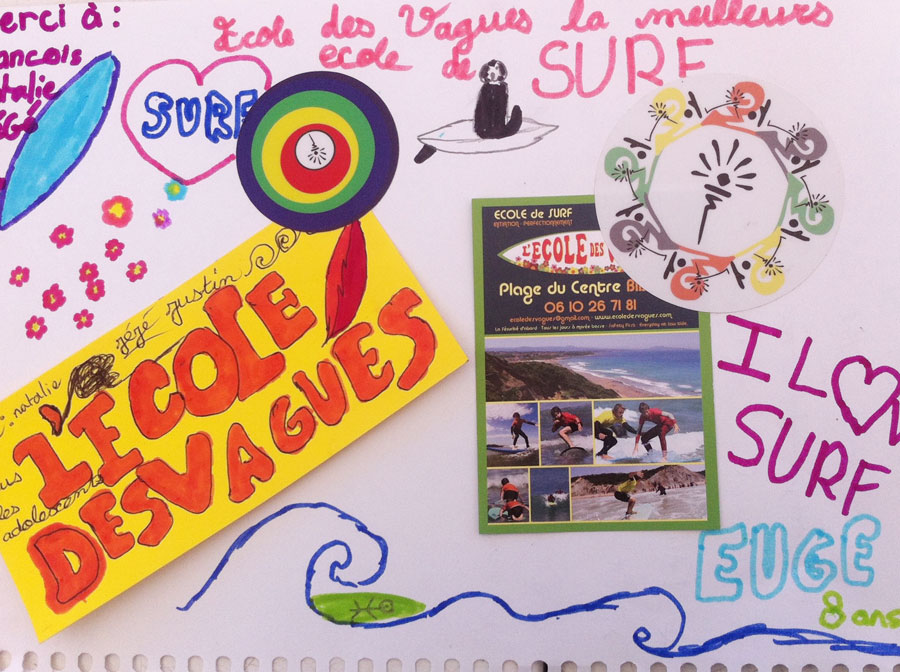 erci à :
ancois
talie
Ecole des Vagues la meilleurs
ecole de SURF
SURF
ECOLE de SURF
INITIATION - PERFECTIONNEMENT
L'ECOLE DES
Plage du Centre
06 10 26 71 81
ecoledesvagues@gmail.com - www.ecoledesvagues.com
natalie
zézé Justin
L'ECOLE
DESVAGUES
les
adolescents
I L
SURF
EUGE
8 ans